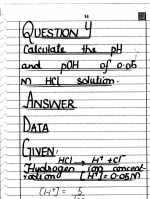 QUESTION 4
Calculate the pH
and pOH of 0.05
M HCl solution.
ANSWER
DATA
GIVEN:
HCl → H⁺ + Cl⁻
Hydrogen ion concent-
ration [H⁺] = 0.05M
[H⁺] = 5